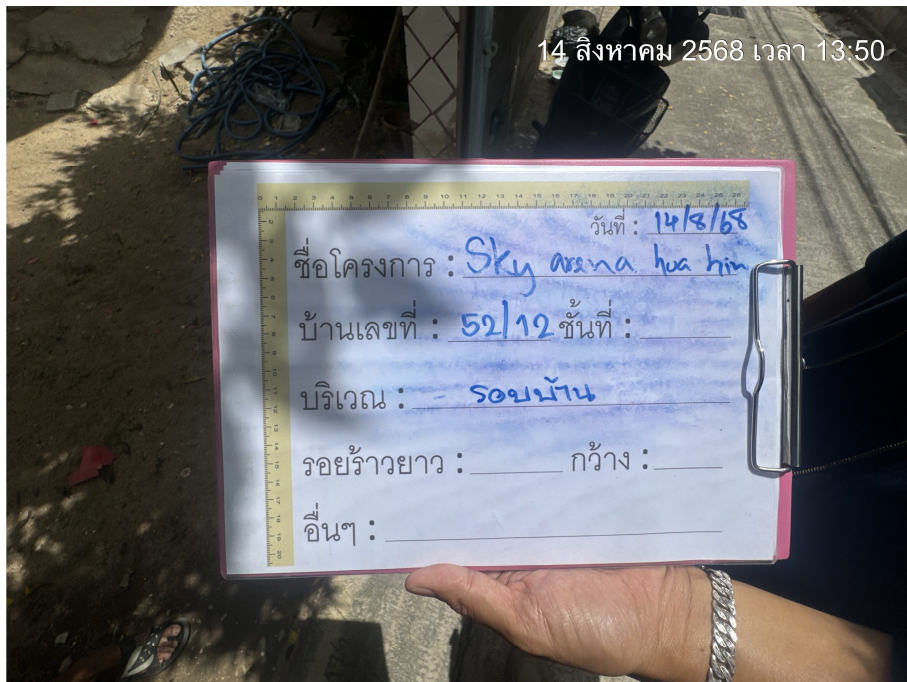 14 สิงหาคม 2568 เวลา 13:50
วันที่ : 14/8/68
ชื่อโครงการ : Sky arena hua hin
บ้านเลขที่ : 52/12 ชั้นที่ :
บริเวณ : รอบบ้าน
รอยร้าวยาว : กว้าง :
อื่นๆ :